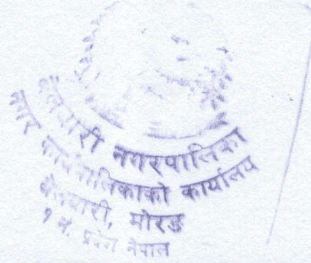 बेलबारी नगरपालिका
नगर कार्यपालिकाको कार्यालय
बेलबारी, मोरङ
१ नं. प्रदेश नेपाल